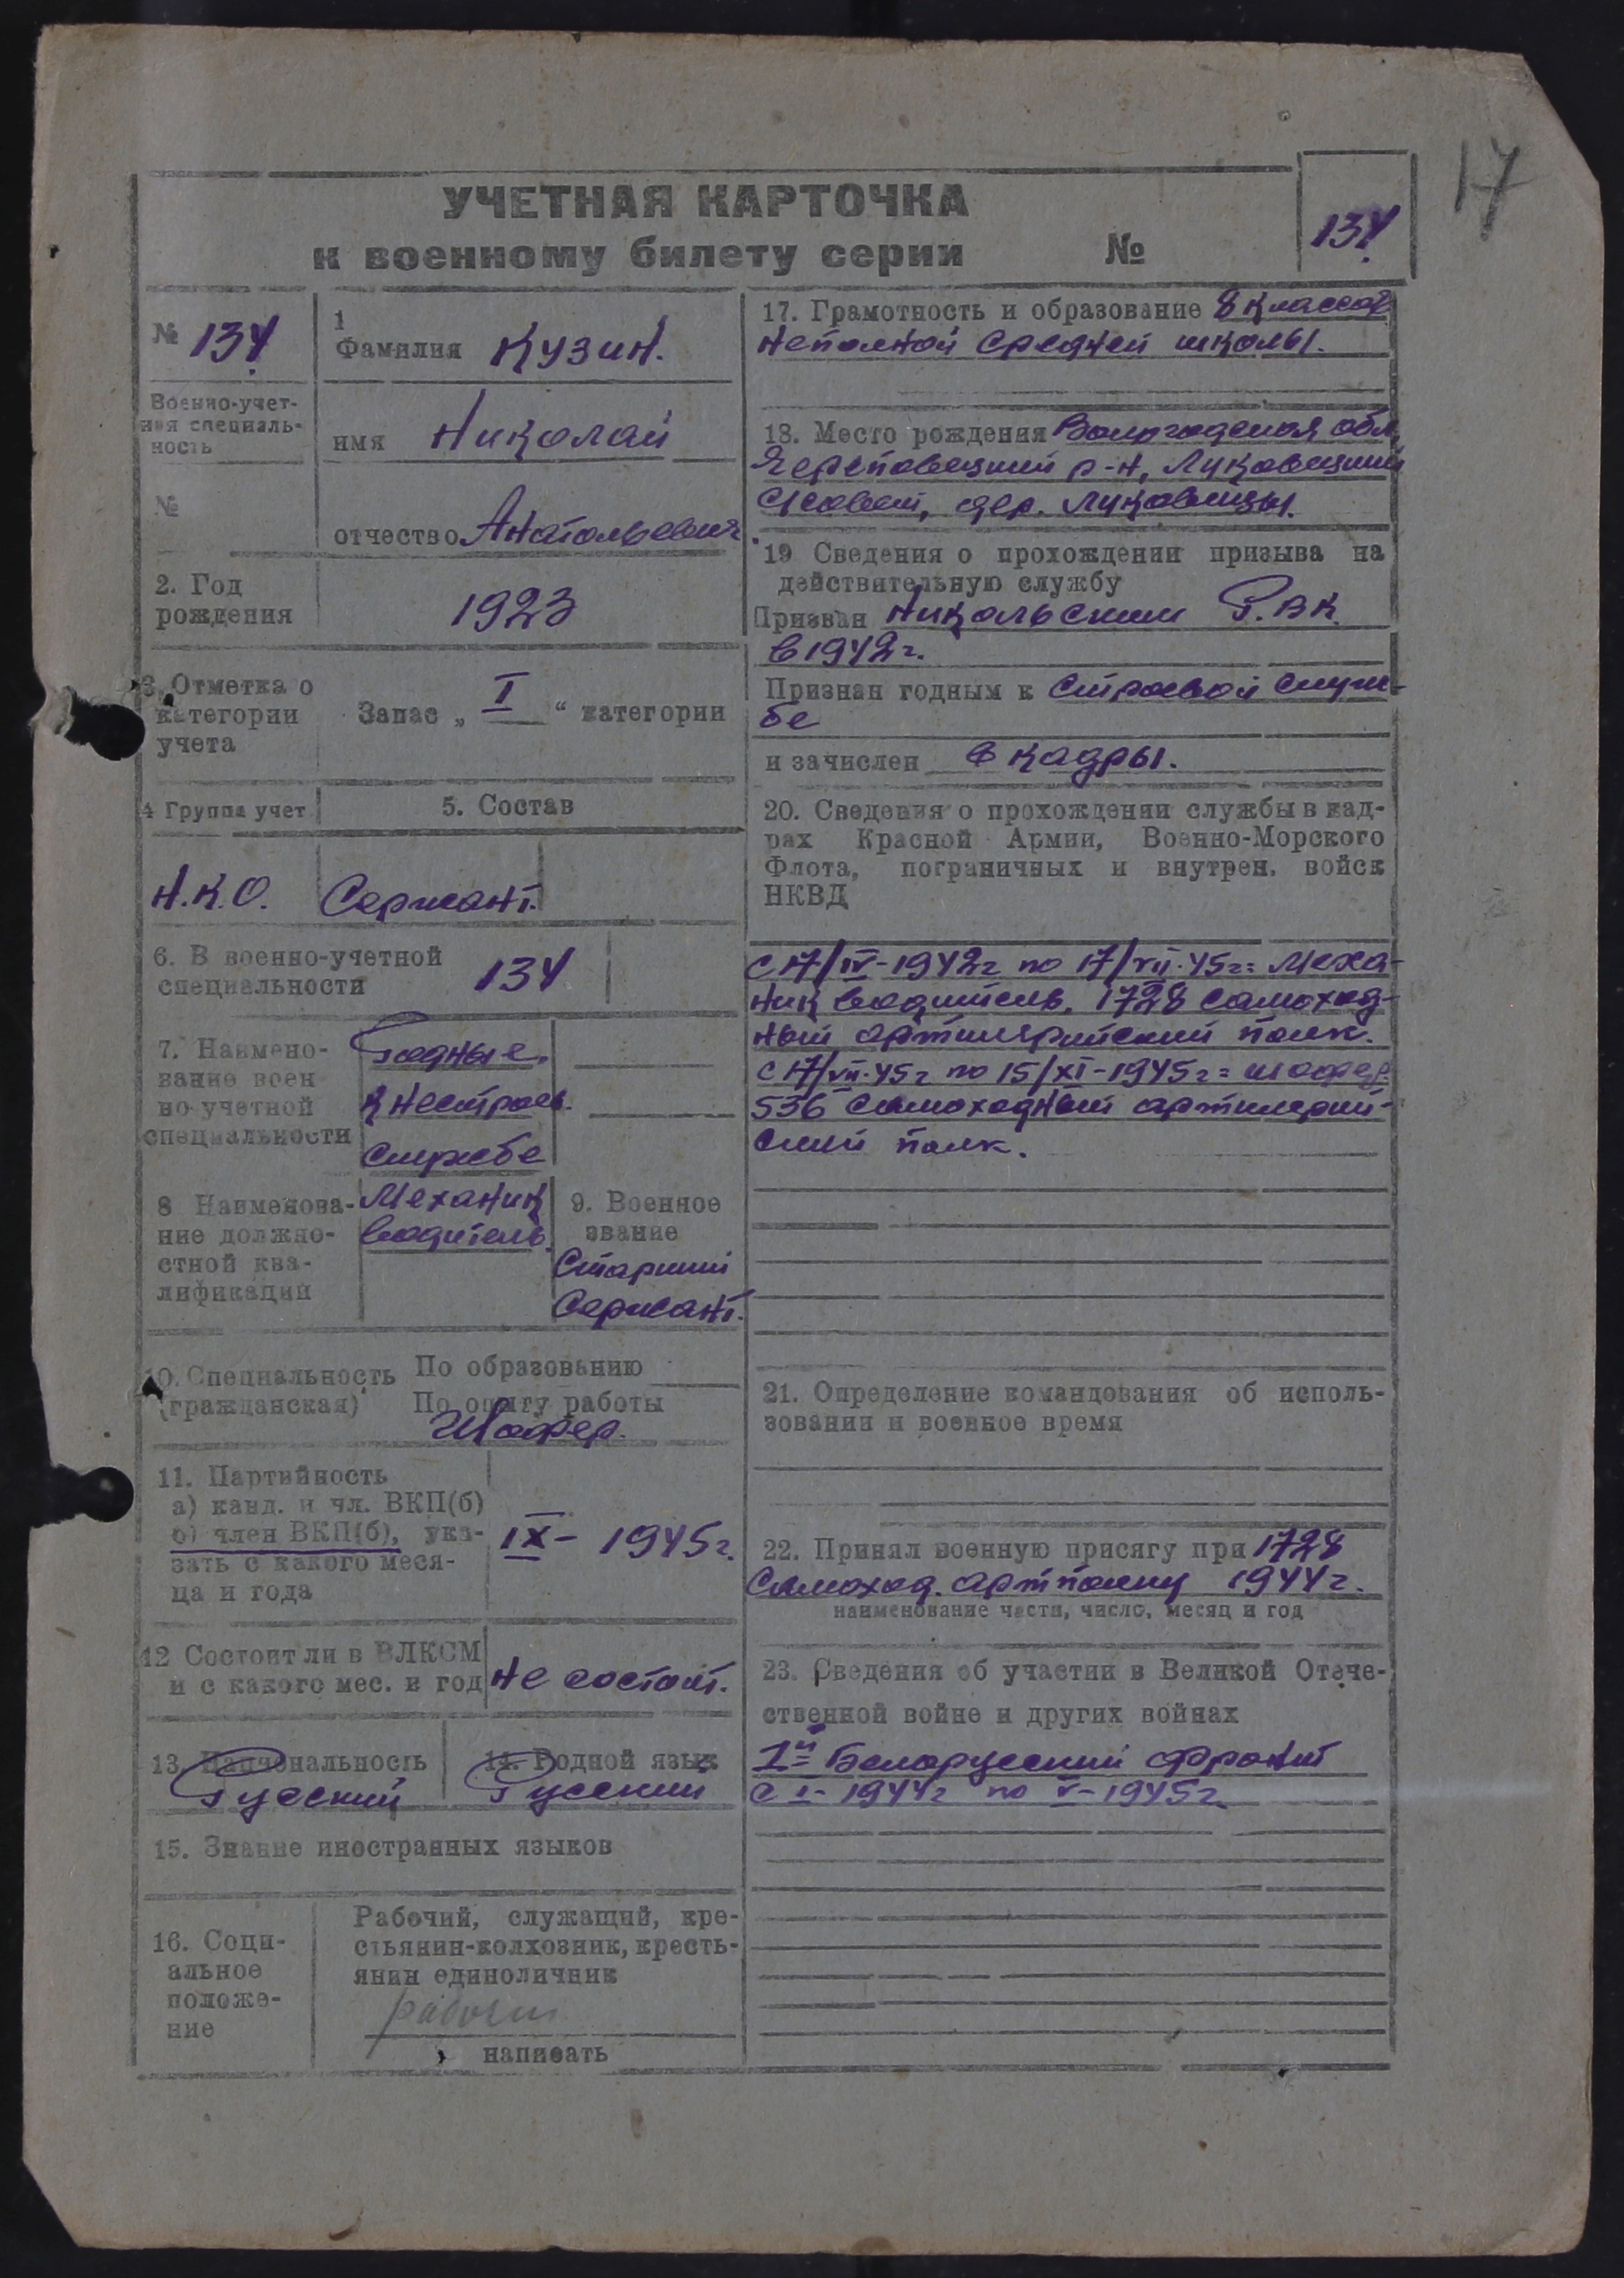 17
УЧЕТНАЯ КАРТОЧКА
к военному билету серии №
134
№ 134
Военно-учет-
ная специаль-
ность
№
1
Фамилия Кузин.
имя Николай
отчество Анатольевич
2. Год
рождения
1923
3. Отметка о
категории
учета
Запас „ I “ категории
4 Группа учет
5. Состав
Н.К.О. Сержант.
6. В военно-учетной
специальности
134
7. Наимено-
вание воен
но-учетной
специальности
Годные
к нестроев.
службе
8 Наименова-
ние должно-
стной ква-
лификации
Механик
водитель.
9. Военное
звание
Старший
Сержант.
10. Специальность
(гражданская)
По образованию
По опыту работы
Шофер.
11. Партийность
а) канд. и чл. ВКП(б)
б) член ВКП(б), ука-
зать с какого меся-
ца и года
IX – 1945 г.
12 Состоит ли в ВЛКСМ
и с какого мес. и год
не состоит.
13. Национальность
Русский
14. Родной язык
Русский
15. Знание иностранных языков
16. Соци-
альное
положе-
ние
Рабочий, служащий, кре-
стьянин-колхозник, кресть-
янин единоличник
рабочий
написать
17. Грамотность и образование 8 классов
неполной средней школы.
18. Место рождения Вологодская обл,
Череповецкий р-н, Луковецкий
с/совет, дер. Луковицы.
19 Сведения о прохождении призыва на
действительную службу
Призван Никольским Р.В.К.
в 1942 г.
Признан годным к строевой служ-
бе
и зачислен в кадры.
20. Сведения о прохождении службы в кад-
рах Красной Армии, Военно-Морского
Флота, пограничных и внутрен. войск
НКВД
с 17/IV-1942 г по 17/VII-45 г = Меха-
ник водитель. 1728 самоход-
ный артиллерийский полк.
с 17/VII-45 г по 15/XI-1945 г = шофер.
536 самоходный артиллерий-
ский полк.
21. Определение командования об исполь-
зовании и военное время
22. Принял военную присягу при 1728
самоход. артполку 1944 г.
наименование части, число, месяц и год
23. Сведения об участии в Великой Отече-
ственной войне и других войнах
1й Белорусский фронт
с I-1944 г по V-1945 г.